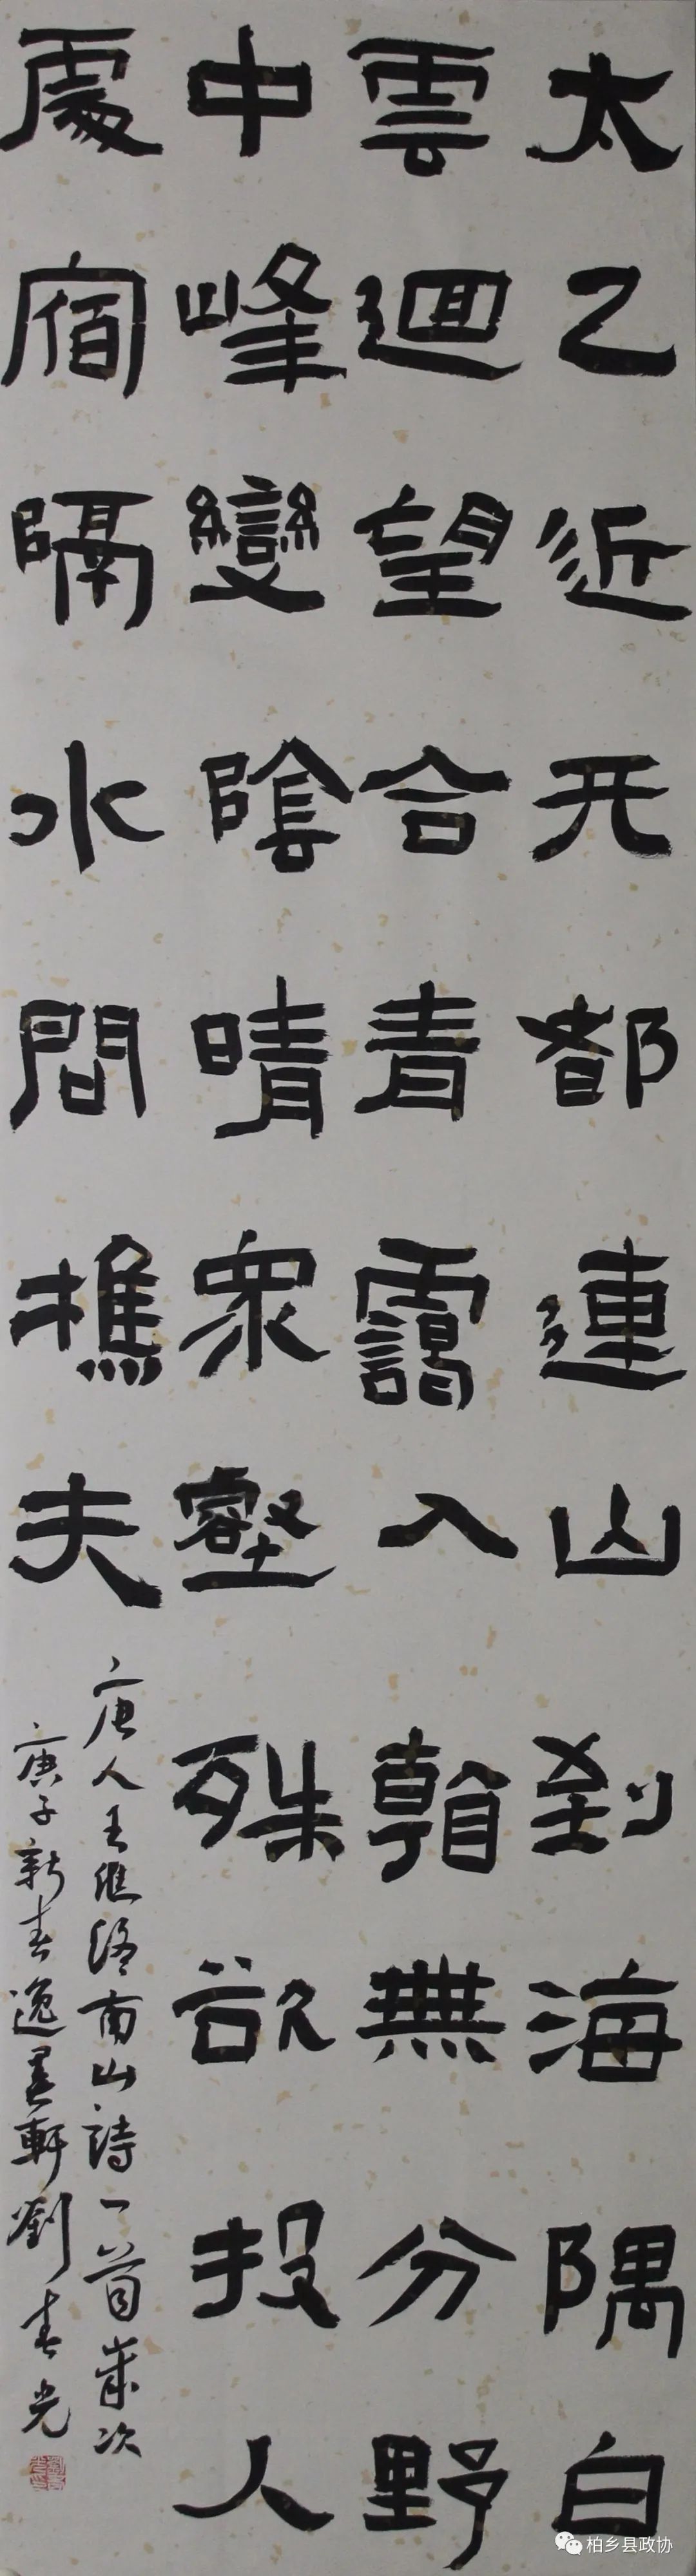 太乙近天都連山到海隅白
雲迴望合青靄入看無分野
中峰變陰晴眾壑殊欲投人
處宿隔水問樵夫
唐人王維終南山詩一首歲次
庚子新春逸墨軒劉春光
柏乡县政协